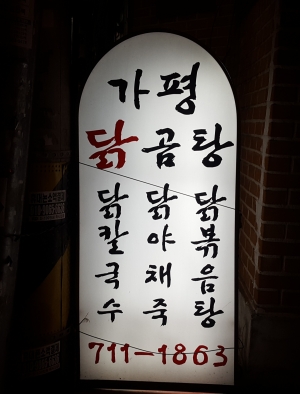 가평
닭곰탕
닭칼국수
닭야채죽
닭볶음탕
711-1863